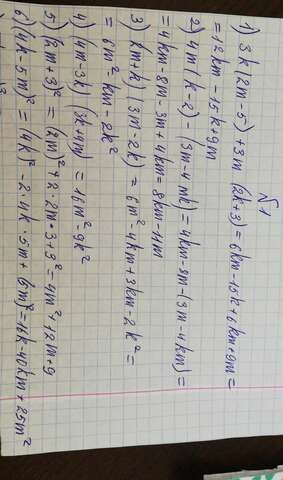 N1
1) 3k(2m-5)+3m(2k+3)=6km-15k+6km+9m=
=12km-15k+9m
2) 4m(k-2)-(3m-4mk)=4km-8m-(3m-4km)=
=4km-8m-3m+4km=8km-11m
3) (2m-k)(3m-2k)=6m²-4km+3km-2k²=
=6m²-km-2k²
4) (4m-3k)(3k+4m)=16m²-9k²
5) (2m+3)²=(2m)²+2·2m·3+3²=4m²+12m+9
6) (4k-5m)²=(4k)²-2·4k·5m+(5m)²=16k-40km+25m²